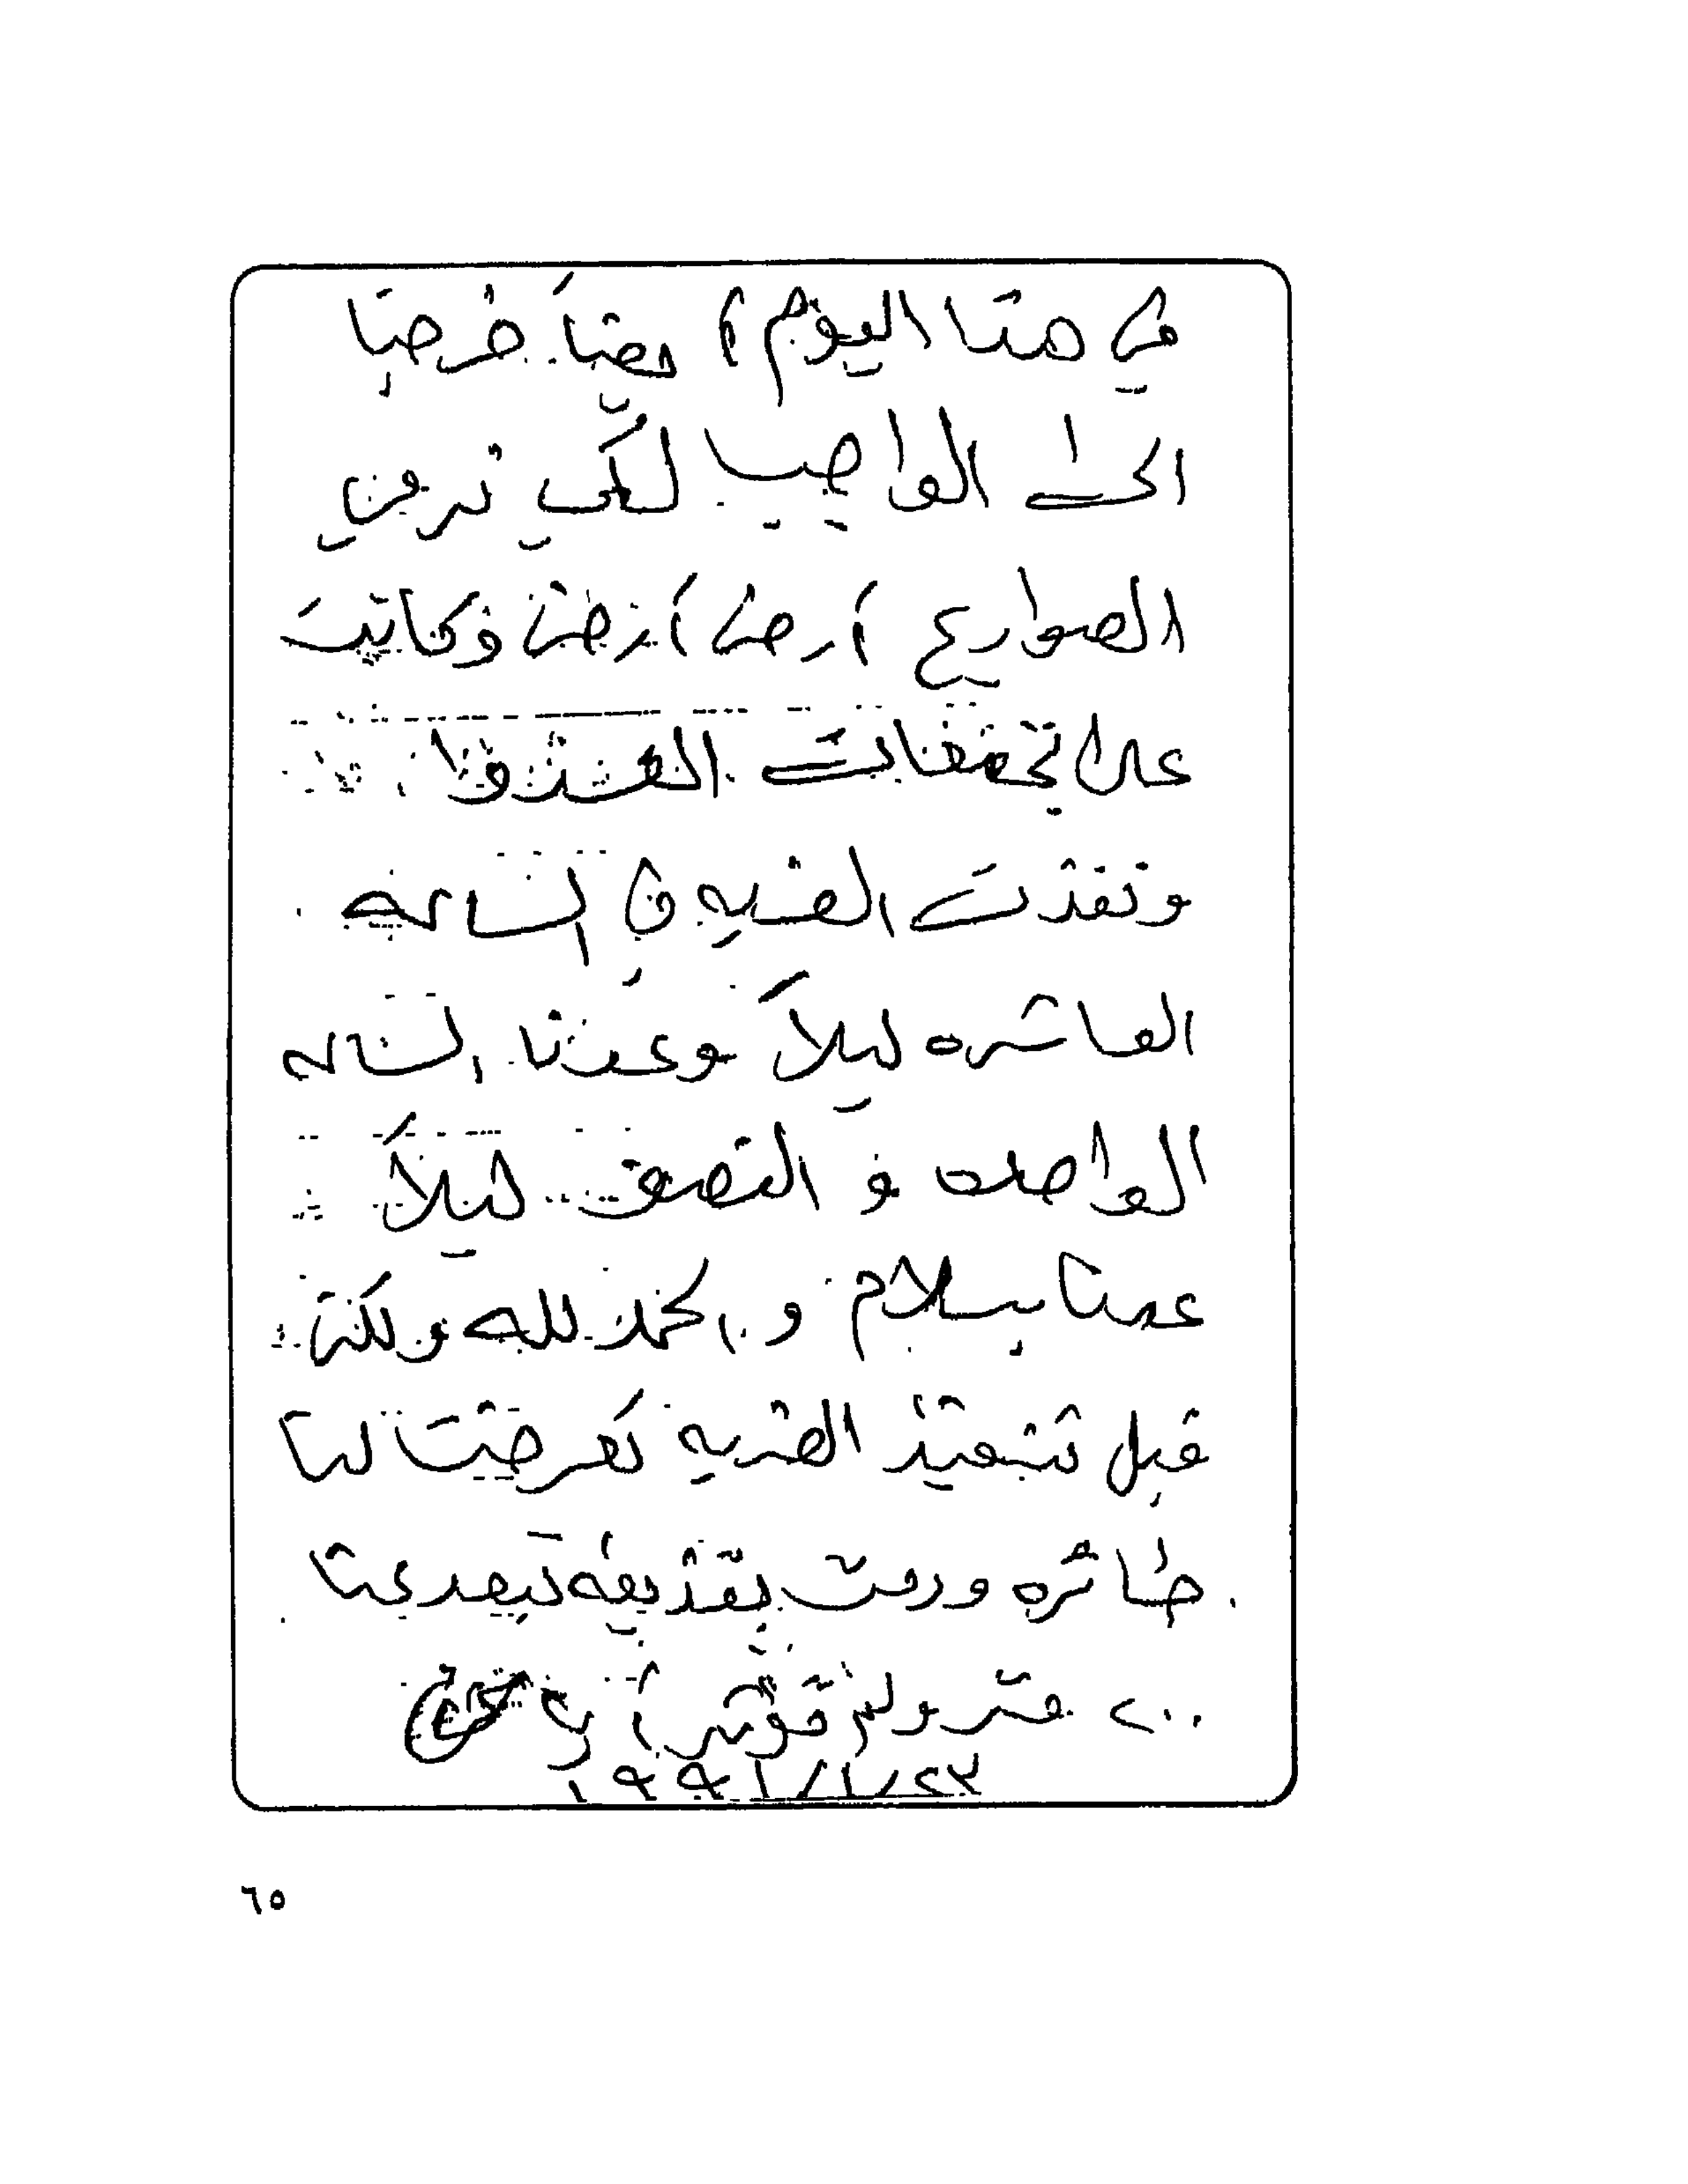 في هذا اليوم أيضاً خرجنا
الى الواجب لكي نرمي
الصواريخ أرض أرض وكانت
على تجمعات العدو
ونفذت الضربه في الساعه
العاشره ليلاً وعدنا الساعه
الواحده و النصف ليلاً
عدنا بسلام و الحمد لله ولكن
قبل تنفيذ الضربه تعرضت لنا
طائره ورمت بقذيفه تبعد عنا
٢٠٠ متر ولم تؤثر أي
١٩٩١/١/٢٣
٦٥